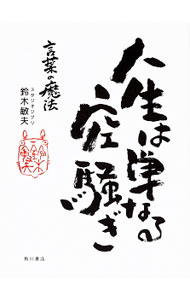 人生は単なる
空騒ぎ
言葉の魔法
スタジオジブリ
鈴木敏夫
角川書店